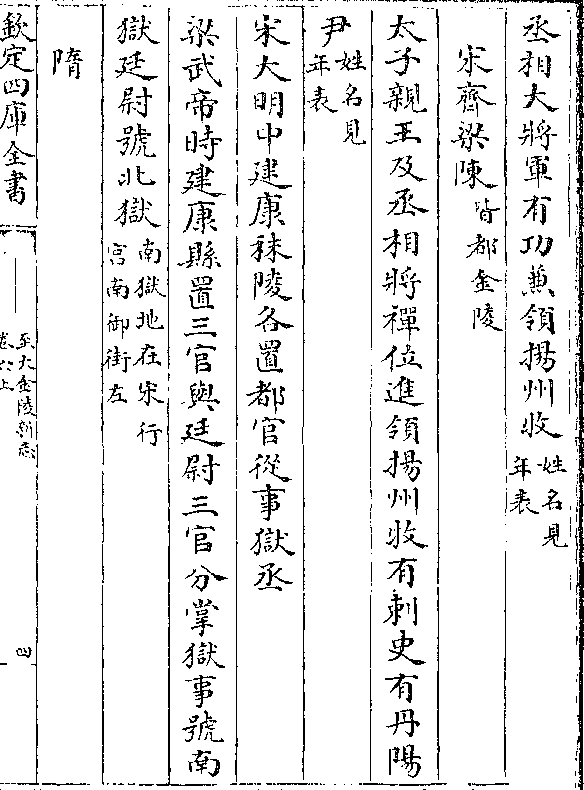 丞相大將軍有功兼領揚州收姓名見
年表
宋齊梁陳皆都金陵
太子親王及丞相將禪位進領揚州收有刺史有丹陽
尹姓名見
年表
宋大明中建康秣陵各置都官從事獄丞
梁武帝時建康縣置三官與廷尉三官分掌獄事號南
獄廷尉號北獄南獄地在宋行
宮南御街左
隋
欽定四庫全書
至大金陵新志
卷六上
四